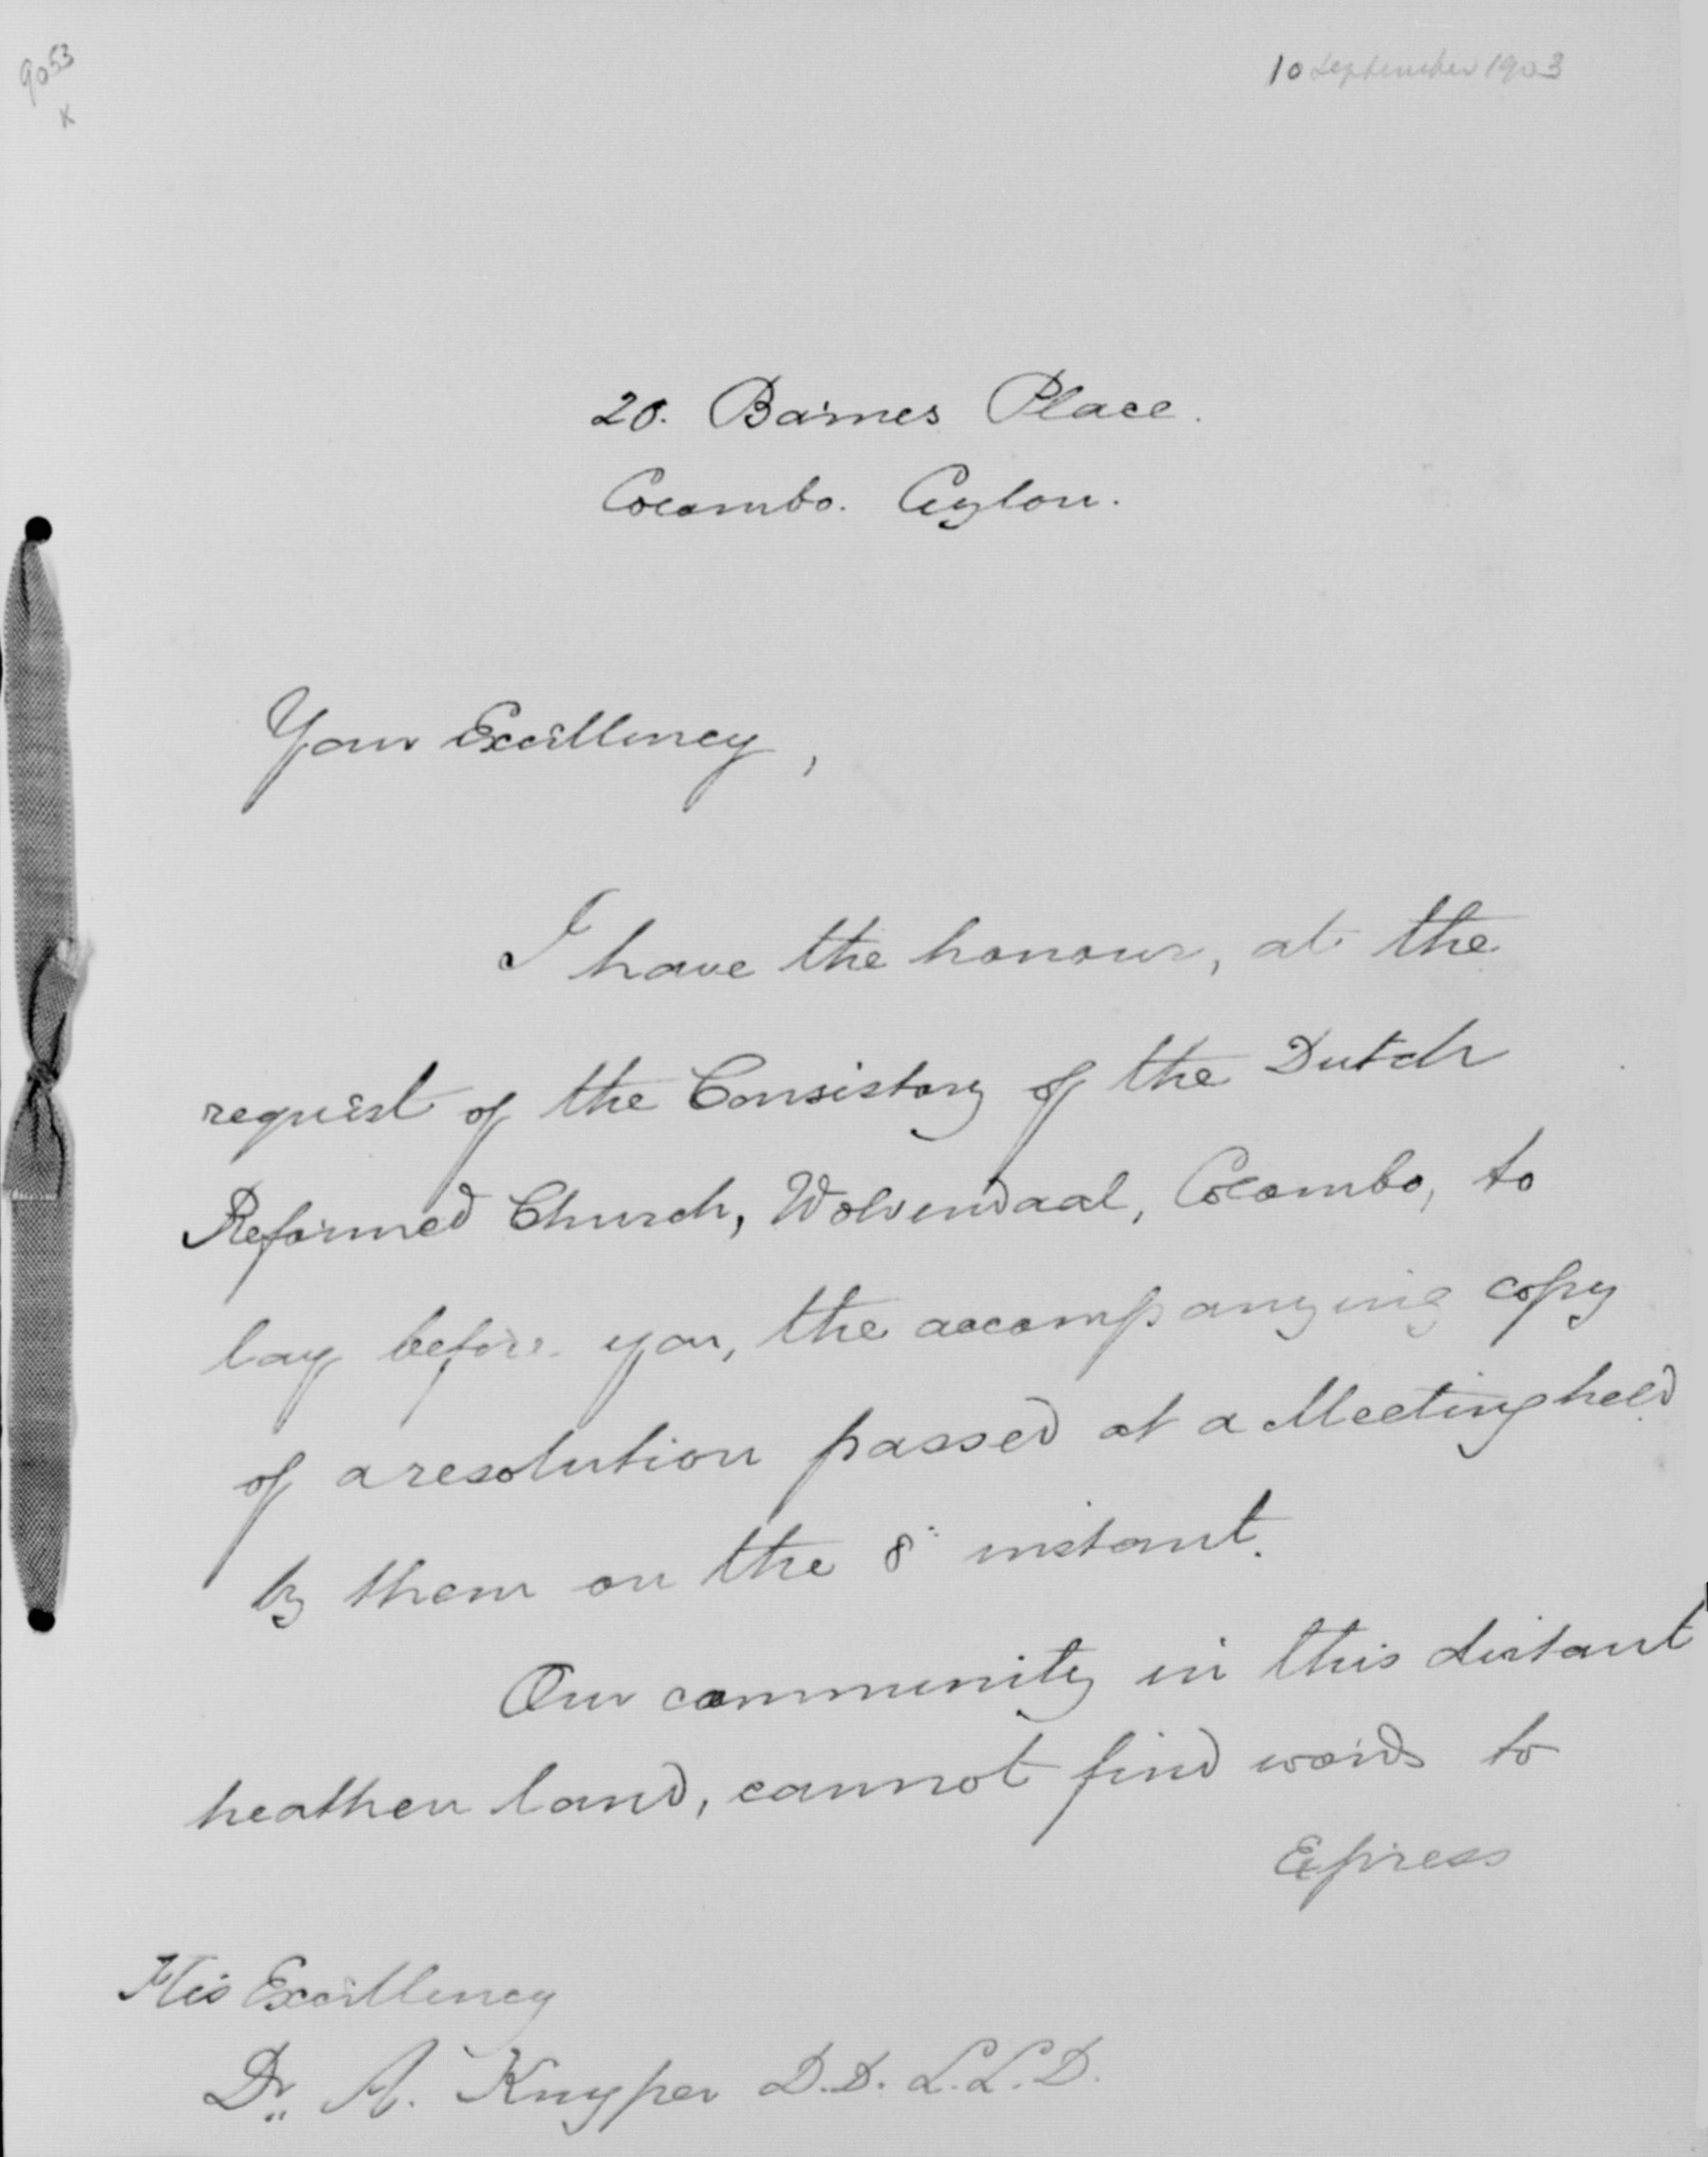 9053
K
10 September 1903
20. Barnes Place.
Colombo. Ceylon.
Your Excellency,
I have the honour, at the
request of the Consistory of the Dutch
Reformed Church, Wolvendaal, Colombo, to
lay before you, the accompanying copy
of a resolution passed at a Meeting held
by them on the 8th instant.
Our community in this distant
heathen land, cannot find words to
Express
His Excellency
Dr. A. Kuyper D.D. L.L.D.